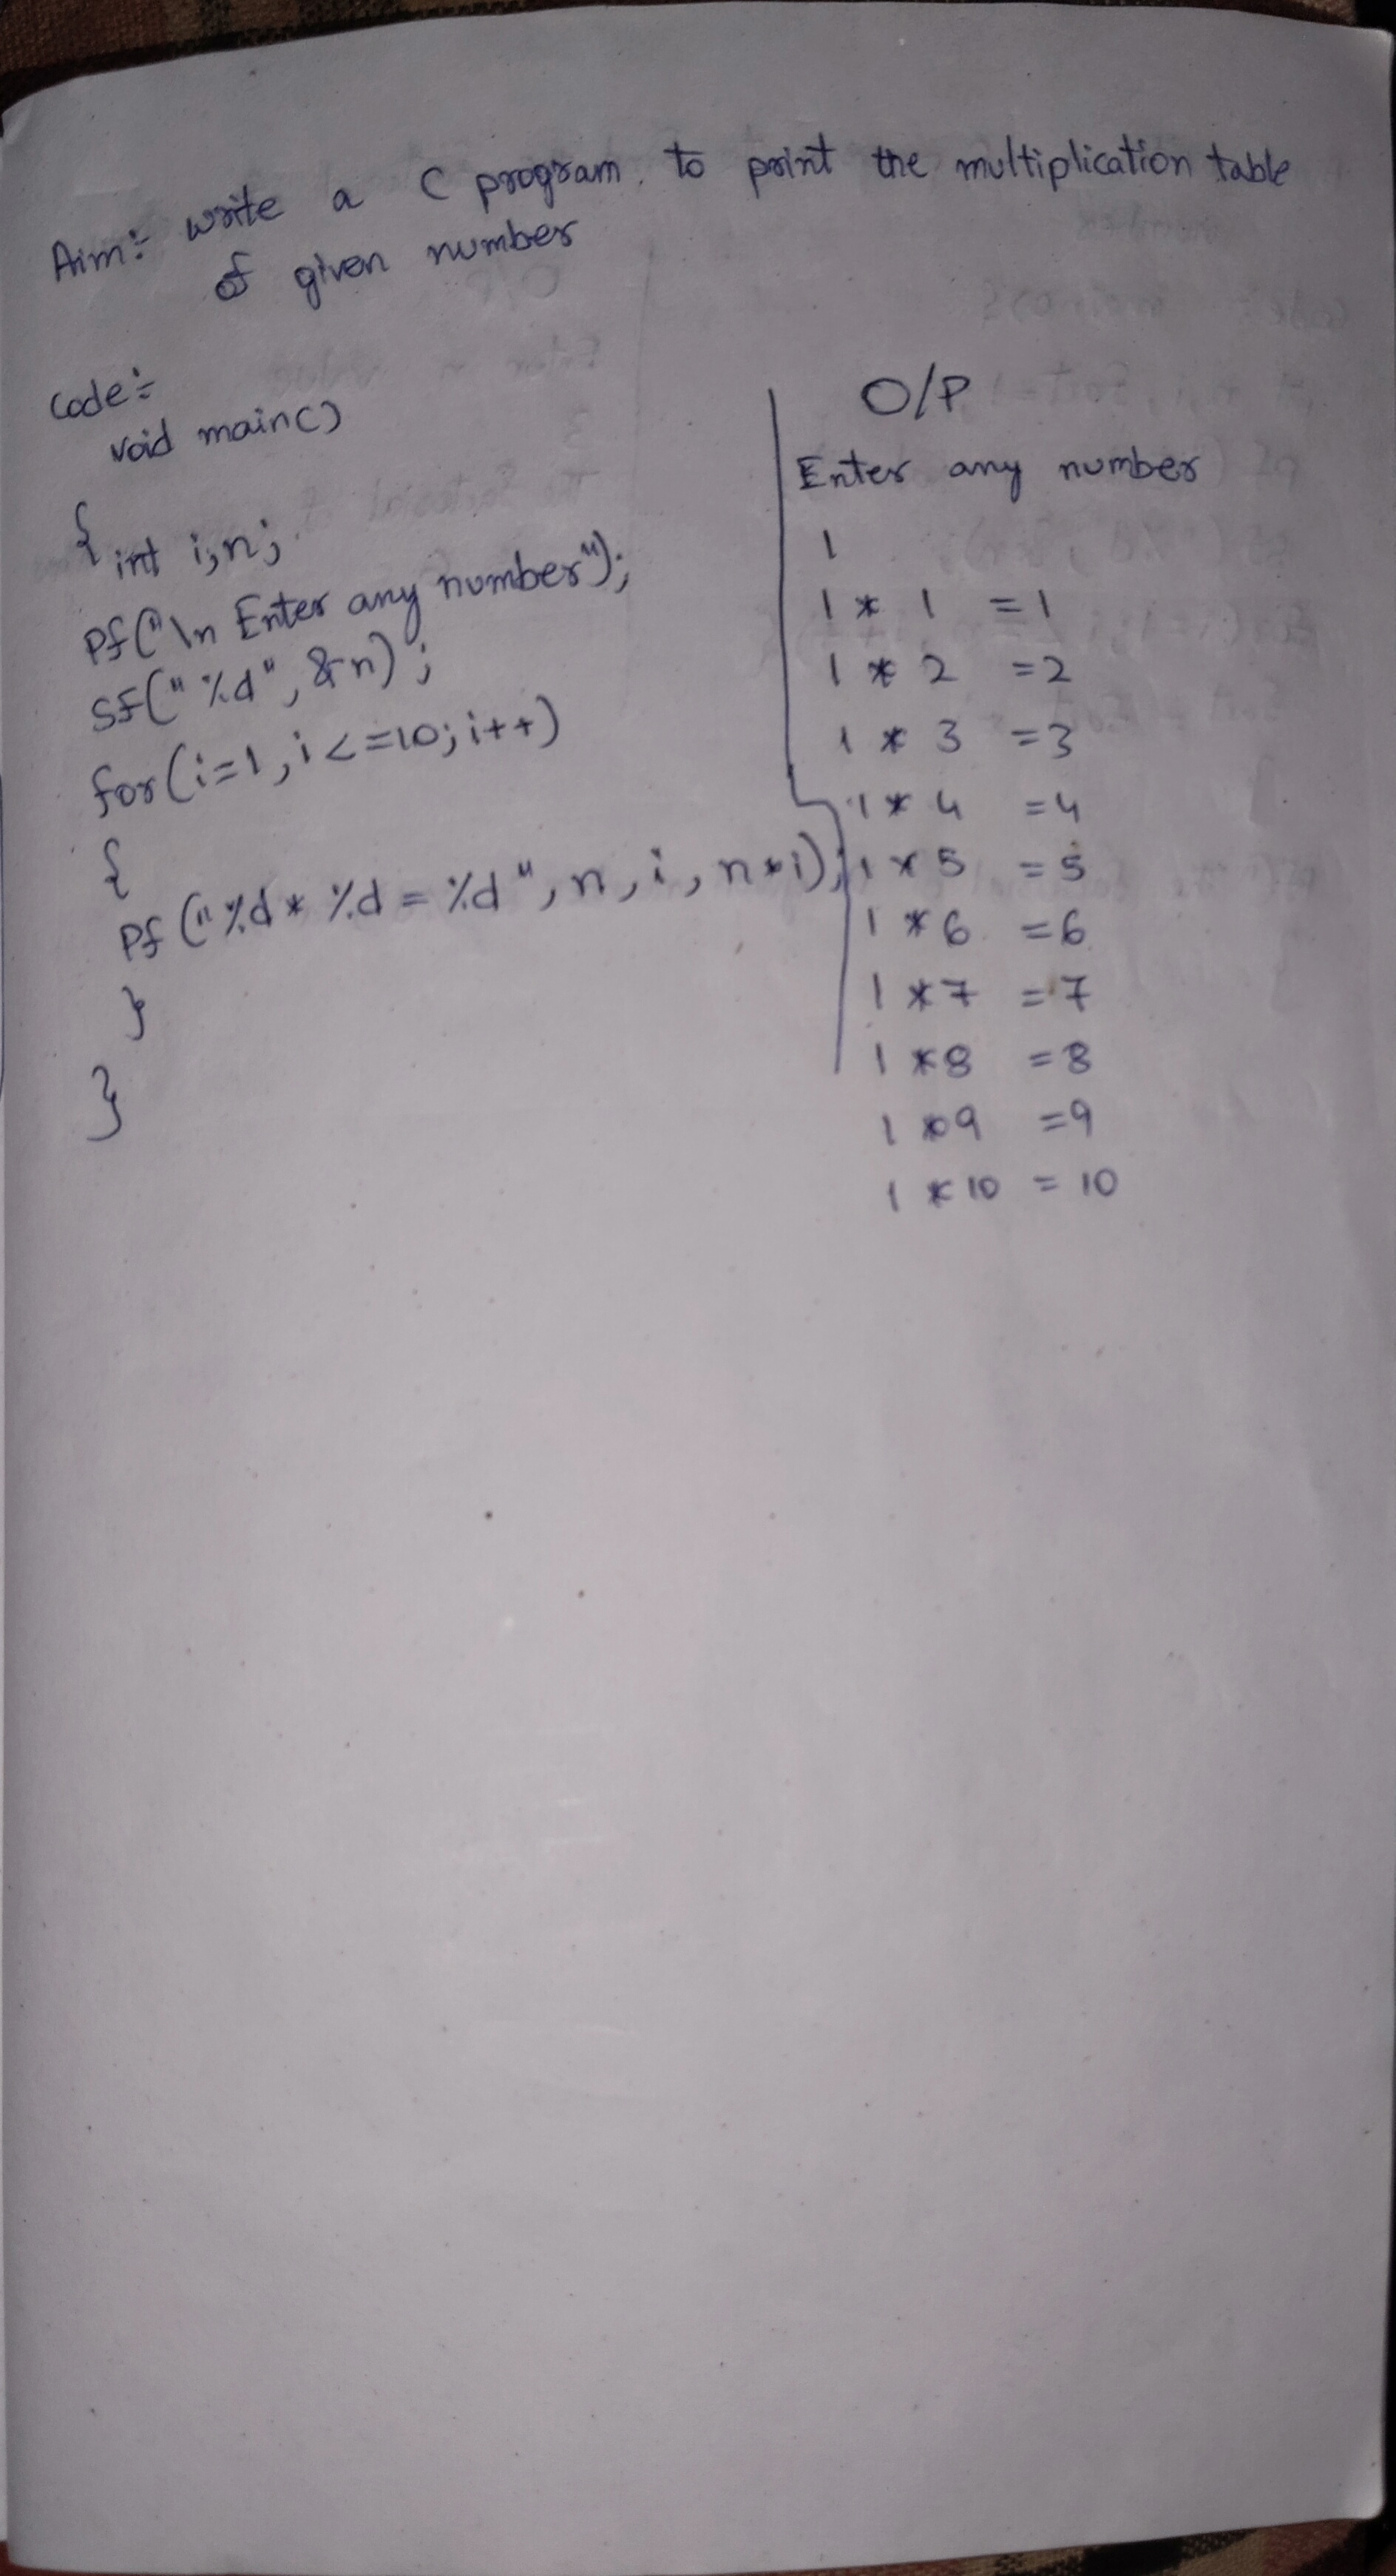 Aim:- write a C program. to print the multiplication table
of given number
Code:-
void main()
{
int i,n;
Pf("\n Enter any number");
Sf("%d", &n);
for(i=1, i<=10; i++)
{
Pf("%d * %d = %d", n, i, n*i);
}
}
O/P
Enter any number
1
1 * 1 =1
1 * 2 =2
1 * 3 =3
1 * 4 =4
1 * 5 =5
1 * 6 =6
1 * 7 =7
1 * 8 =8
1 * 9 =9
1 * 10 = 10